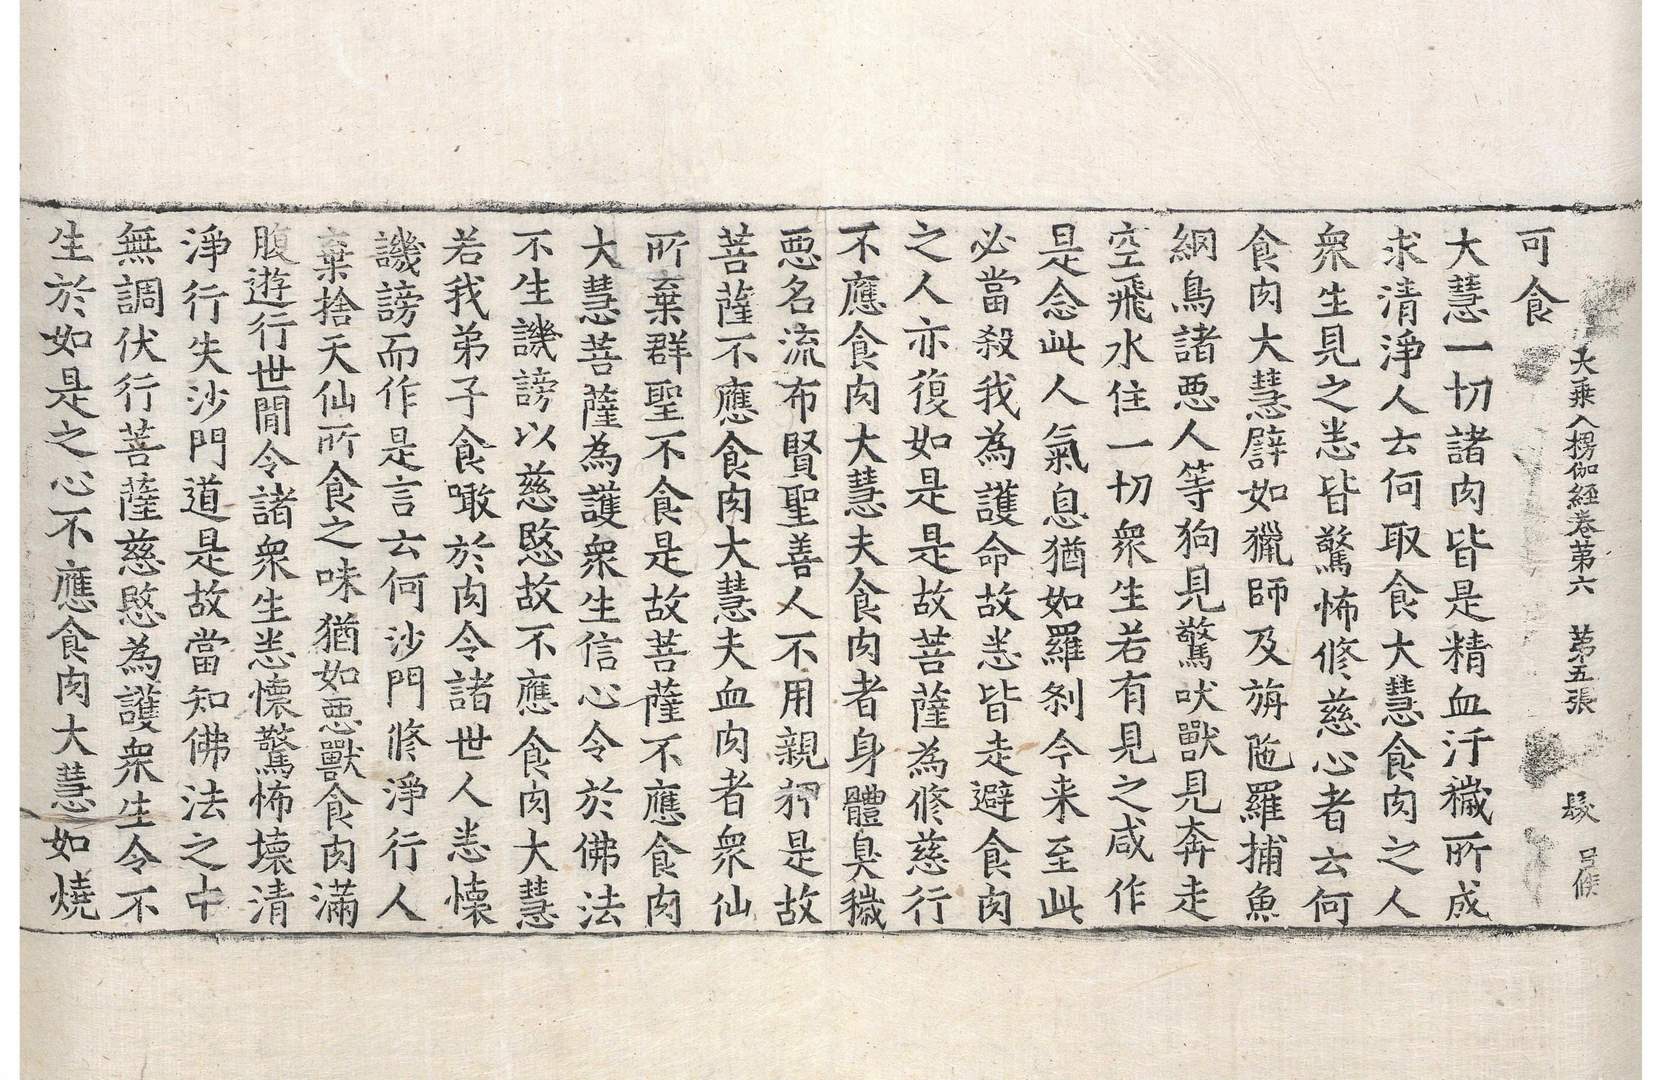 大乘入楞伽經卷第六　第五張　髮　呂候
可食
大慧一切諸肉皆是精血汙穢所成
求清淨人云何取食大慧食肉之人
衆生見之悉皆驚怖修慈心者云何
食肉大慧譬如獵師及旃陁羅捕魚
網鳥諸惡人等狗見驚吠獸見奔走
空飛水住一切衆生若有見之咸作
是念此人氣息猶如羅刹今来至此
必當殺我為護命故悉皆走避食肉
之人亦復如是是故菩薩為修慈行
不應食肉大慧夫食肉者身體臭穢
惡名流布賢聖善人不用親狎是故
菩薩不應食肉大慧夫血肉者衆仙
所棄群聖不食是故菩薩不應食肉
大慧菩薩為護衆生信心令於佛法
不生譏謗以慈愍故不應食肉大慧
若我弟子食噉於肉令諸世人悉懷
譏謗而作是言云何沙門修淨行人
棄捨天仙所食之味猶如惡獸食肉滿
腹遊行世間令諸衆生悉懷驚怖壞清
淨行失沙門道是故當知佛法之中
無調伏行菩薩慈愍為護衆生令不
生於如是之心不應食肉大慧如燒